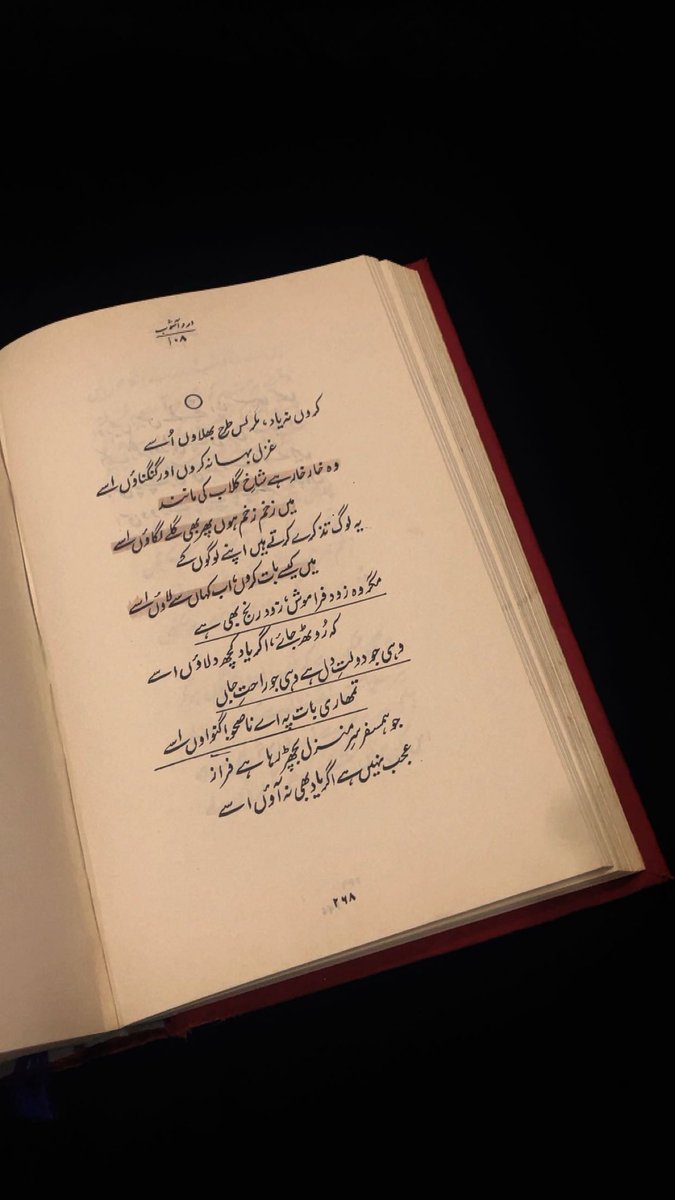 درد آشوب
۱۰۸
کروں نہ یاد، مگر کس طرح بھلاؤں اُسے
غزل بہانہ کروں اور گنگناؤں اسے
وہ خار خار ہے شاخِ گلاب کی مانند
میں زخم زخم ہوں پھر بھی گلے لگاؤں اسے
یہ لوگ تذکرے کرتے ہیں اپنے لوگوں کے
میں کیسے بات کروں، اب کہاں سے لاؤں اسے
مگر وہ زود فراموش، زود رنج بھی ہے
کہ رُوٹھ جائے، اگر یاد کچھ دلاؤں اسے
وہی جو دولتِ دل ہے وہی جو راحتِ جاں
تمھاری بات پہ اے ناصحو! گنواؤں اسے
جو ہمسفر سرِ منزل بچھڑ رہا ہے فراز
عجب نہیں ہے اگر یاد بھی نہ آؤں اسے
۲۶۸